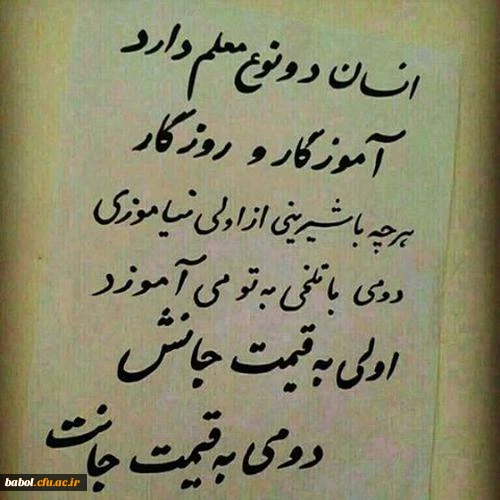 انسان دو نوع معلم دارد
آموزگار و روزگار
هرچه با شیرینی از اولی نیاموزی
دومی با تلخی به تو می آموزد
اولی به قیمت جانش
دومی به قیمت جانت
babol.cfu.ac.ir